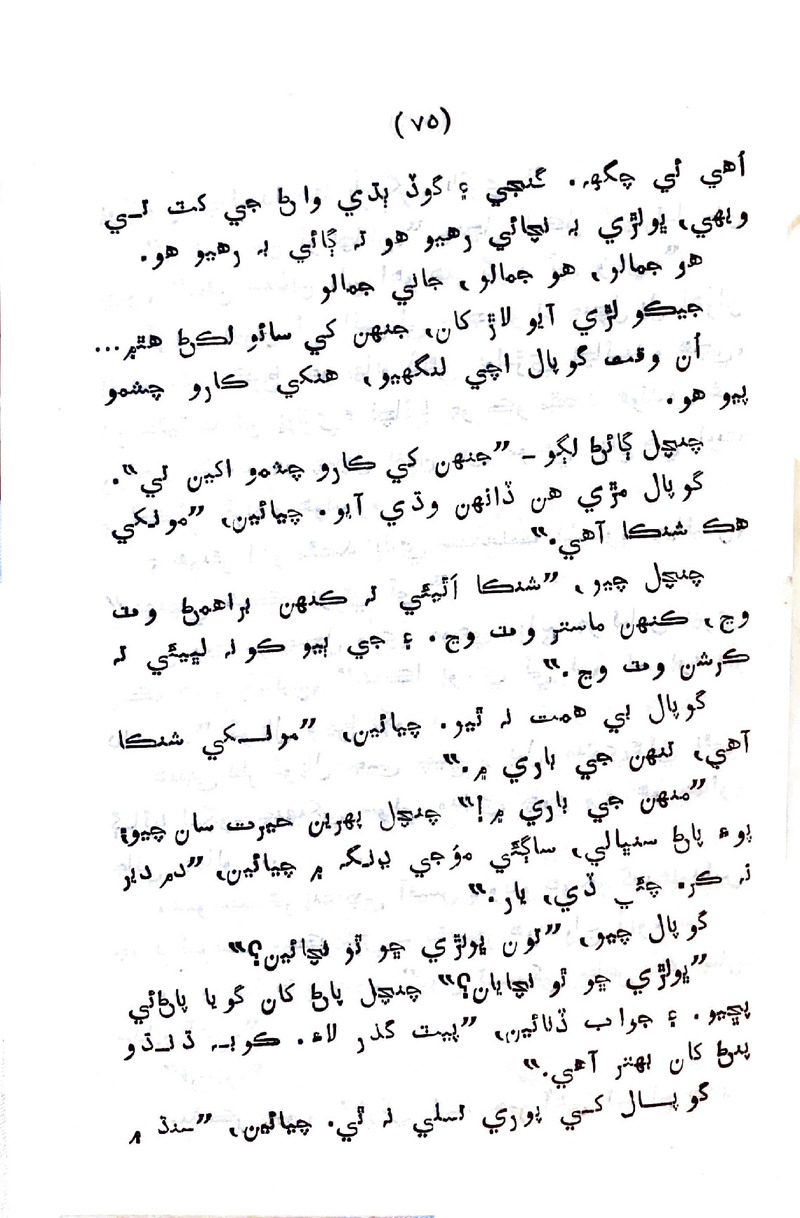 (٧٥)
اُهي ئي چڱهه. گنجي ۽ گوڏ ٻڌي واڻ جي کٽ تي
ويهي، ڀولڙي به نچائي رهيو هو ته ڳائي به رهيو هو.
هو جمالو، هو جمالو، جاني جمالو
جيڪو لڙي آيو لاڙ کان، جنهن کي سائو لڪڻ هٿ ۾...
اُن وقت گوپال اچي لنگهيو، هنکي ڪارو چشمو
پيو هو.
چنچل ڳائڻ لڳو - ”جنهن کي ڪارو چشمو اکين تي“.
گوپال مڙي هن ڏانهن وڌي آيو. چيائين، ”مونکي
هڪ شنڪا آهي.“
چنچل چيو، ”شنڪا اٿيئي ته ڪنهن براهمڻ وٽ
وڃ، ڪنهن ماستر وٽ وڃ. ۽ جي ٻيو ڪو نه لڀيئي ته
ڪرشن وٽ وڃ.“
گوپال بي همت نه ٿيو. چيائين، ”مونکي شنڪا
آهي، تنهن جي باري ۾.“
”منهن جي باري ۾!“ چنچل پهرين حيرت سان چيو؛
پوءِ پاڻ سنڀالي، ساڳئي مؤجي ڍنگ ۾ چيائين، ”دم دير
نه ڪر. چئي ڏي، يار.“
گوپال چيو، ”تون ڀولڙي ڇو ٿو نچائين؟“
”ڀولڙي ڇو ٿو نچايان؟“ چنچل پاڻ کان گويا پاڻ ئي
پڇيو. ۽ جواب ڏنائين، ”پيٽ گذر لاءِ. ڪوبه ڌنڌو
پنڻ کان بهتر آهي.“
گوپال کي پوري تسلي نه ٿي. چيائين، ”سنڌ ۾